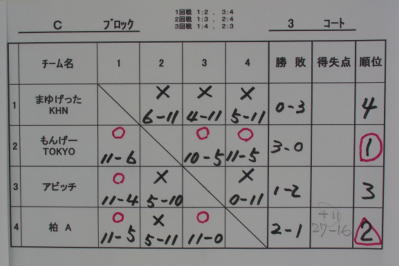 C ブロック
1回戦 1:2 , 3:4
2回戦 1:3 , 2:4
3回戦 1:4 , 2:3
3 コート
チーム名 1 2 3 4 勝 敗 得失点 順位
1 まゆげった KHN × 6-11 × 4-11 × 5-11 0-3 4
2 もんげー TOKYO ○ 11-6 ○ 10-5 ○ 11-5 3-0 1
3 アビッチ ○ 11-4 × 5-10 × 0-11 1-2 3
4 柏 A ○ 11-5 × 5-11 ○ 11-0 2-1 +11 27-16 2